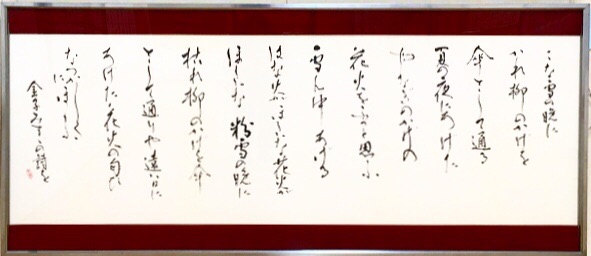 こな雪の晩に
かれ柳のかげを
傘さして通る
夏の夜にあげた
やなぎのかげの
花火をふと思ふ
雪ん中あげる
はな火がほしいな花火が
ほしいな 粉雪の晩に
枯れ柳のかげを傘
さして通れば遠い日に
あげた花火の匂ひ
なつかしく
金子みすゞの詩を